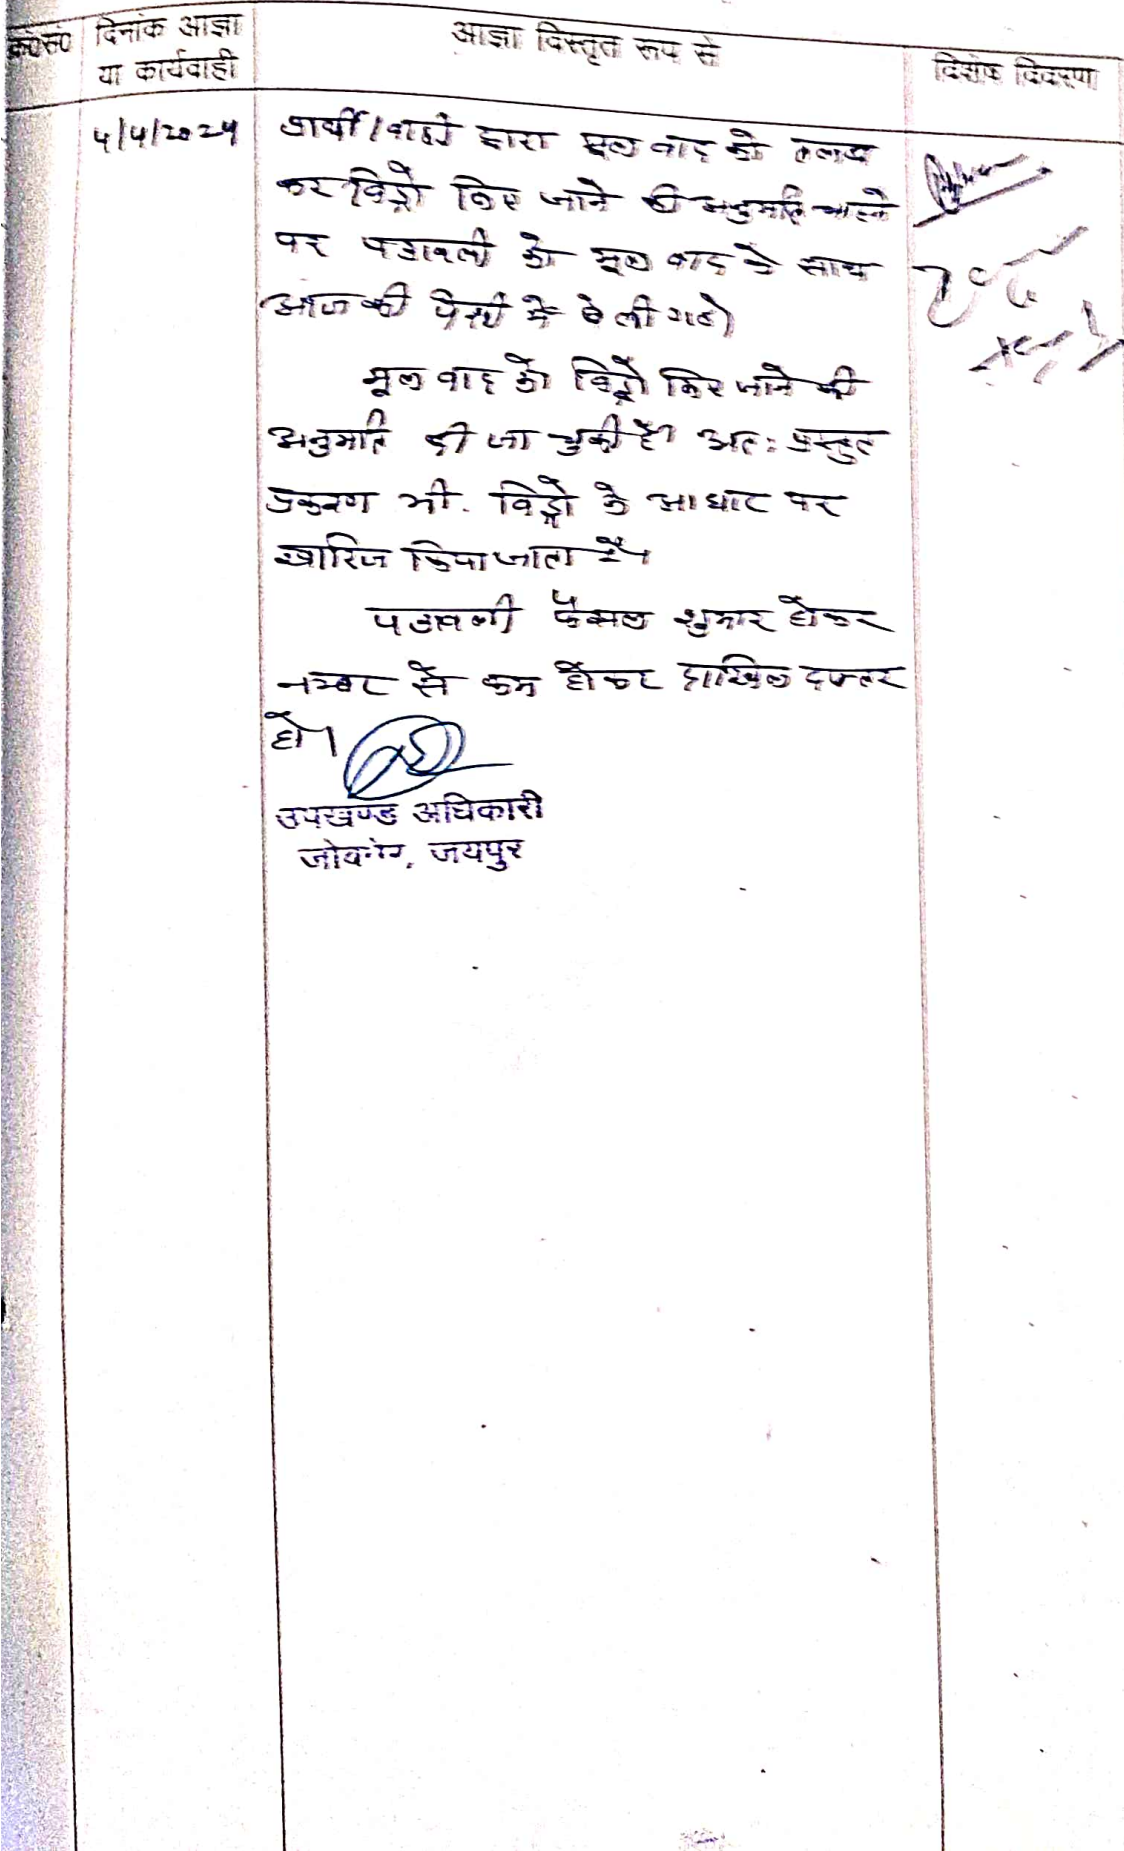 क्र0सं0 दिनांक आज्ञा या कार्यवाही आज्ञा विस्तृत रूप से विशेष विवरण
प्रार्थी/वादी द्वारा मूल वाद को तलब
कर विड्रो किए जाने की अनुमति चाहने
पर पत्रावली को मूल वाद के साथ
आज की पेशी में ले ली गई।
मूल वाद को विड्रो किए जाने की
अनुमति दी जा चुकी है। अतः प्रस्तुत
प्रकरण भी. विड्रो के आधार पर
खारिज किया जाता है।
पत्रावली फैसल शुमार होकर
नम्बर से कम होकर दाखिल दफ्तर
हो।
उपखण्ड अधिकारी
जोबनेर, जयपुर